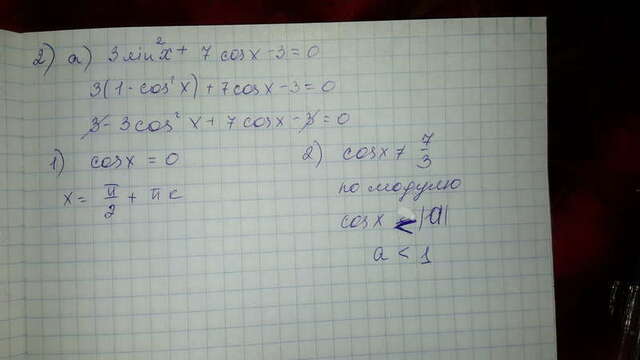 2) a) 3 sin²x + 7 cosx - 3 = 0
3(1 - cos²x) + 7cosx - 3 = 0
3 - 3cos²x + 7cosx - 3 = 0
1) cosx = 0
x = π/2 + πk
2) cosx ≠ 7/3
по модулю
cosx < |a|
a < 1